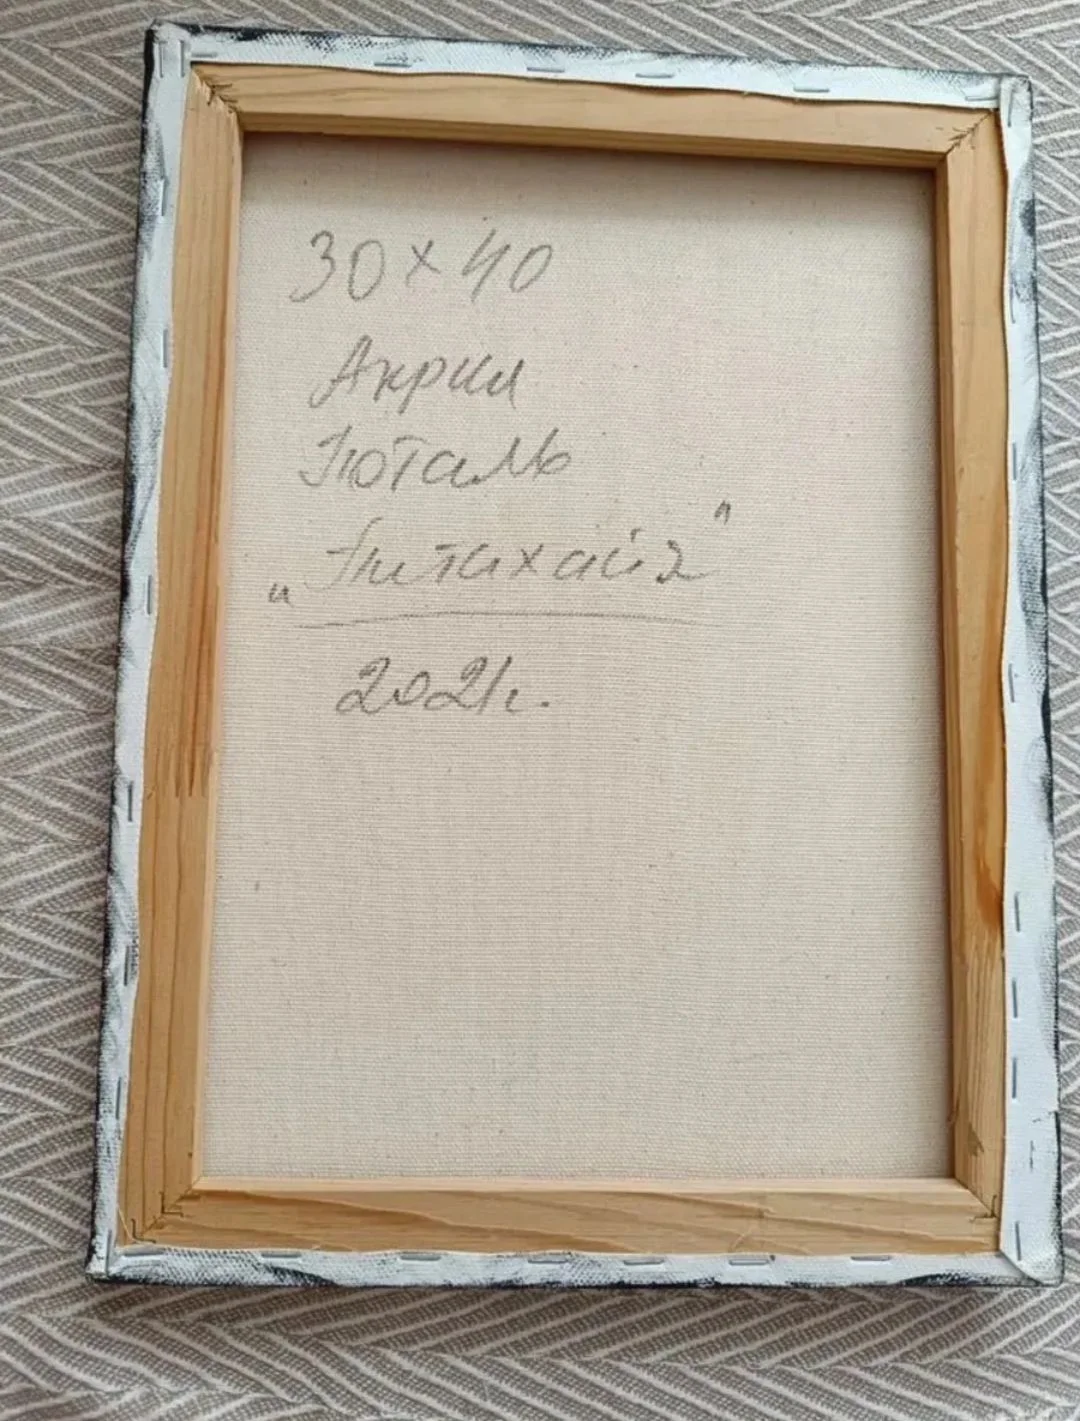 30×40
Акрил
Поталь
„Питахайя"
2021г.